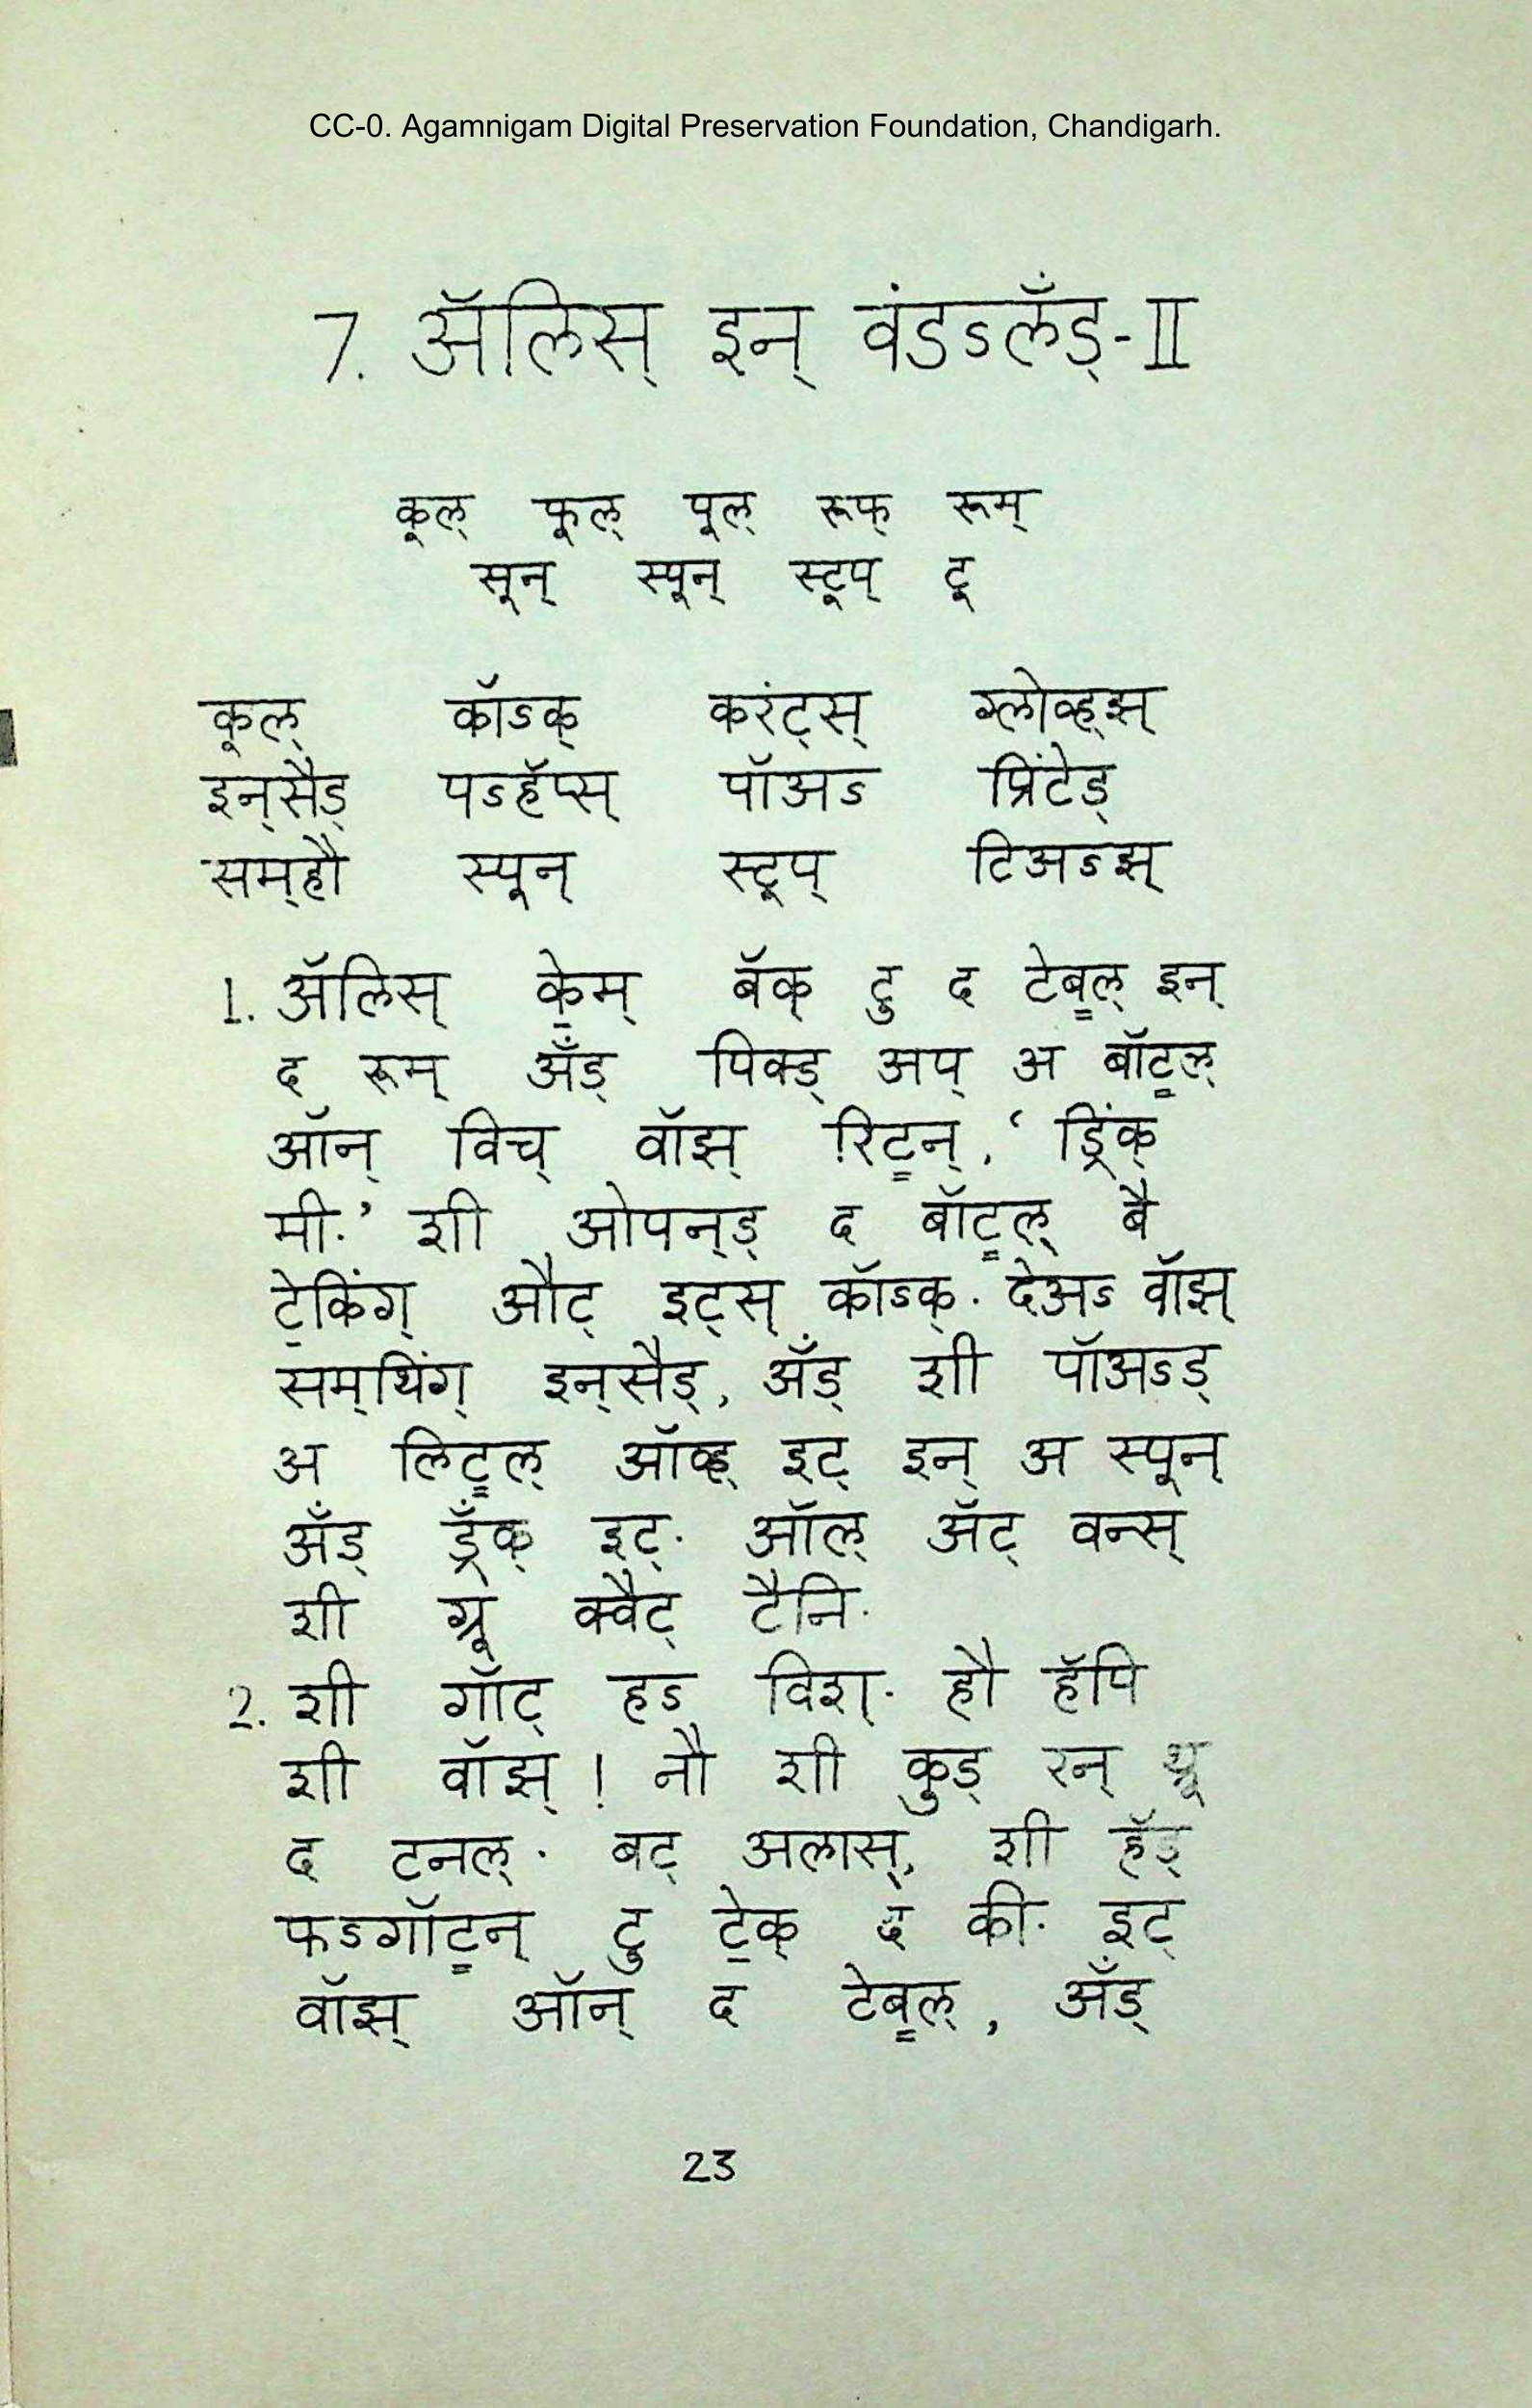 CC-0. Agamnigam Digital Preservation Foundation, Chandigarh.
7. ॲलिस् इन् वंडऽलँड्-II
कूल् फूल् पूल् रूफ् रूम्
सून् स्पून् स्टूप् टू
कूल् कॉऽक् करंट्स् ग्लोव्ह्झ्
इन्सैड् पऽहॅप्स् पॉअऽ प्रिंटेड्
सम्हौ स्पून् स्टूप् टिअऽझ्
1. ॲलिस् के़म् बॅक् टु द टेब॒ल् इन्
द रूम् ॲंड् पिक्ड् अप् अ बॉट॒ल्
ऑन् विच् वॉझ् रिट॒न्, ‘ ड्रिंक्
मी.’ शी ओपन्ड् द बॉट॒ल् बै
टे॒किंग् औट् इट्स् कॉऽक्. देअऽ वॉझ्
सम्थिंग् इन्सैड्, ॲंड् शी पॉअऽड्
अ लिट॒ल् ऑव्ह् इट् इन् अ स्पून्
ॲंड् ड्रँक् इट्. ऑल् ॲट् वन्स्
शी ग्रू क्वैट् टैनि.
2. शी गॉट् हऽ विश्. हौ हॅपि
शी वॉझ् ! नौ शी कुड् रन् थ्रू
द टनल्. बट् अलास्, शी हॅड्
फऽगॉट॒न् टु टे॒क् द की. इट्
वॉझ् ऑन् द टेब॒ल्, ॲंड्
23